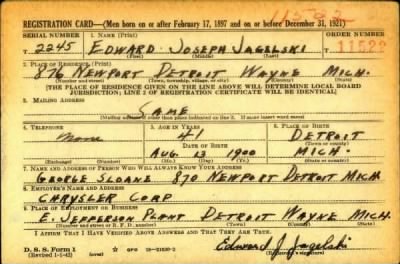 REGISTRATION CARD—(Men born on or after February 17, 1897 and on or before December 31, 1921)
SERIAL NUMBER 1. NAME (Print) ORDER NUMBER
T 2245 EDWARD JOSEPH JAGELSKI 11522
(First) (Middle) (Last)
2. PLACE OF RESIDENCE (Print)
876 NEWPORT DETROIT WAYNE MICH.
(Number and street) (Town, township, village, or city) (County) (State)
[THE PLACE OF RESIDENCE GIVEN ON THE LINE ABOVE WILL DETERMINE LOCAL BOARD
JURISDICTION; LINE 2 OF REGISTRATION CERTIFICATE WILL BE IDENTICAL]
3. MAILING ADDRESS
SAME
(Mailing address if other than place indicated on line 2. If same insert word same)
4. TELEPHONE 5. AGE IN YEARS 6. PLACE OF BIRTH
none 41 DETROIT
DATE OF BIRTH (Town or county)
AUG. 13 1900 MICH
(Exchange) (Number) (Mo.) (Day) (Yr.) (State or country)
7. NAME AND ADDRESS OF PERSON WHO WILL ALWAYS KNOW YOUR ADDRESS
GEORGE SLOANE 870 NEWPORT DETROIT MICH
8. EMPLOYER'S NAME AND ADDRESS
CHRYSLER CORP
9. PLACE OF EMPLOYMENT OR BUSINESS
E. JEFFERSON PLANT DETROIT WAYNE MICH.
(Number and street or R. F. D. number) (Town) (County) (State)
I AFFIRM THAT I HAVE VERIFIED ABOVE ANSWERS AND THAT THEY ARE TRUE.
D. S. S. Form 1
(Revised 1-1-42) GPO Edward J. Jagelski